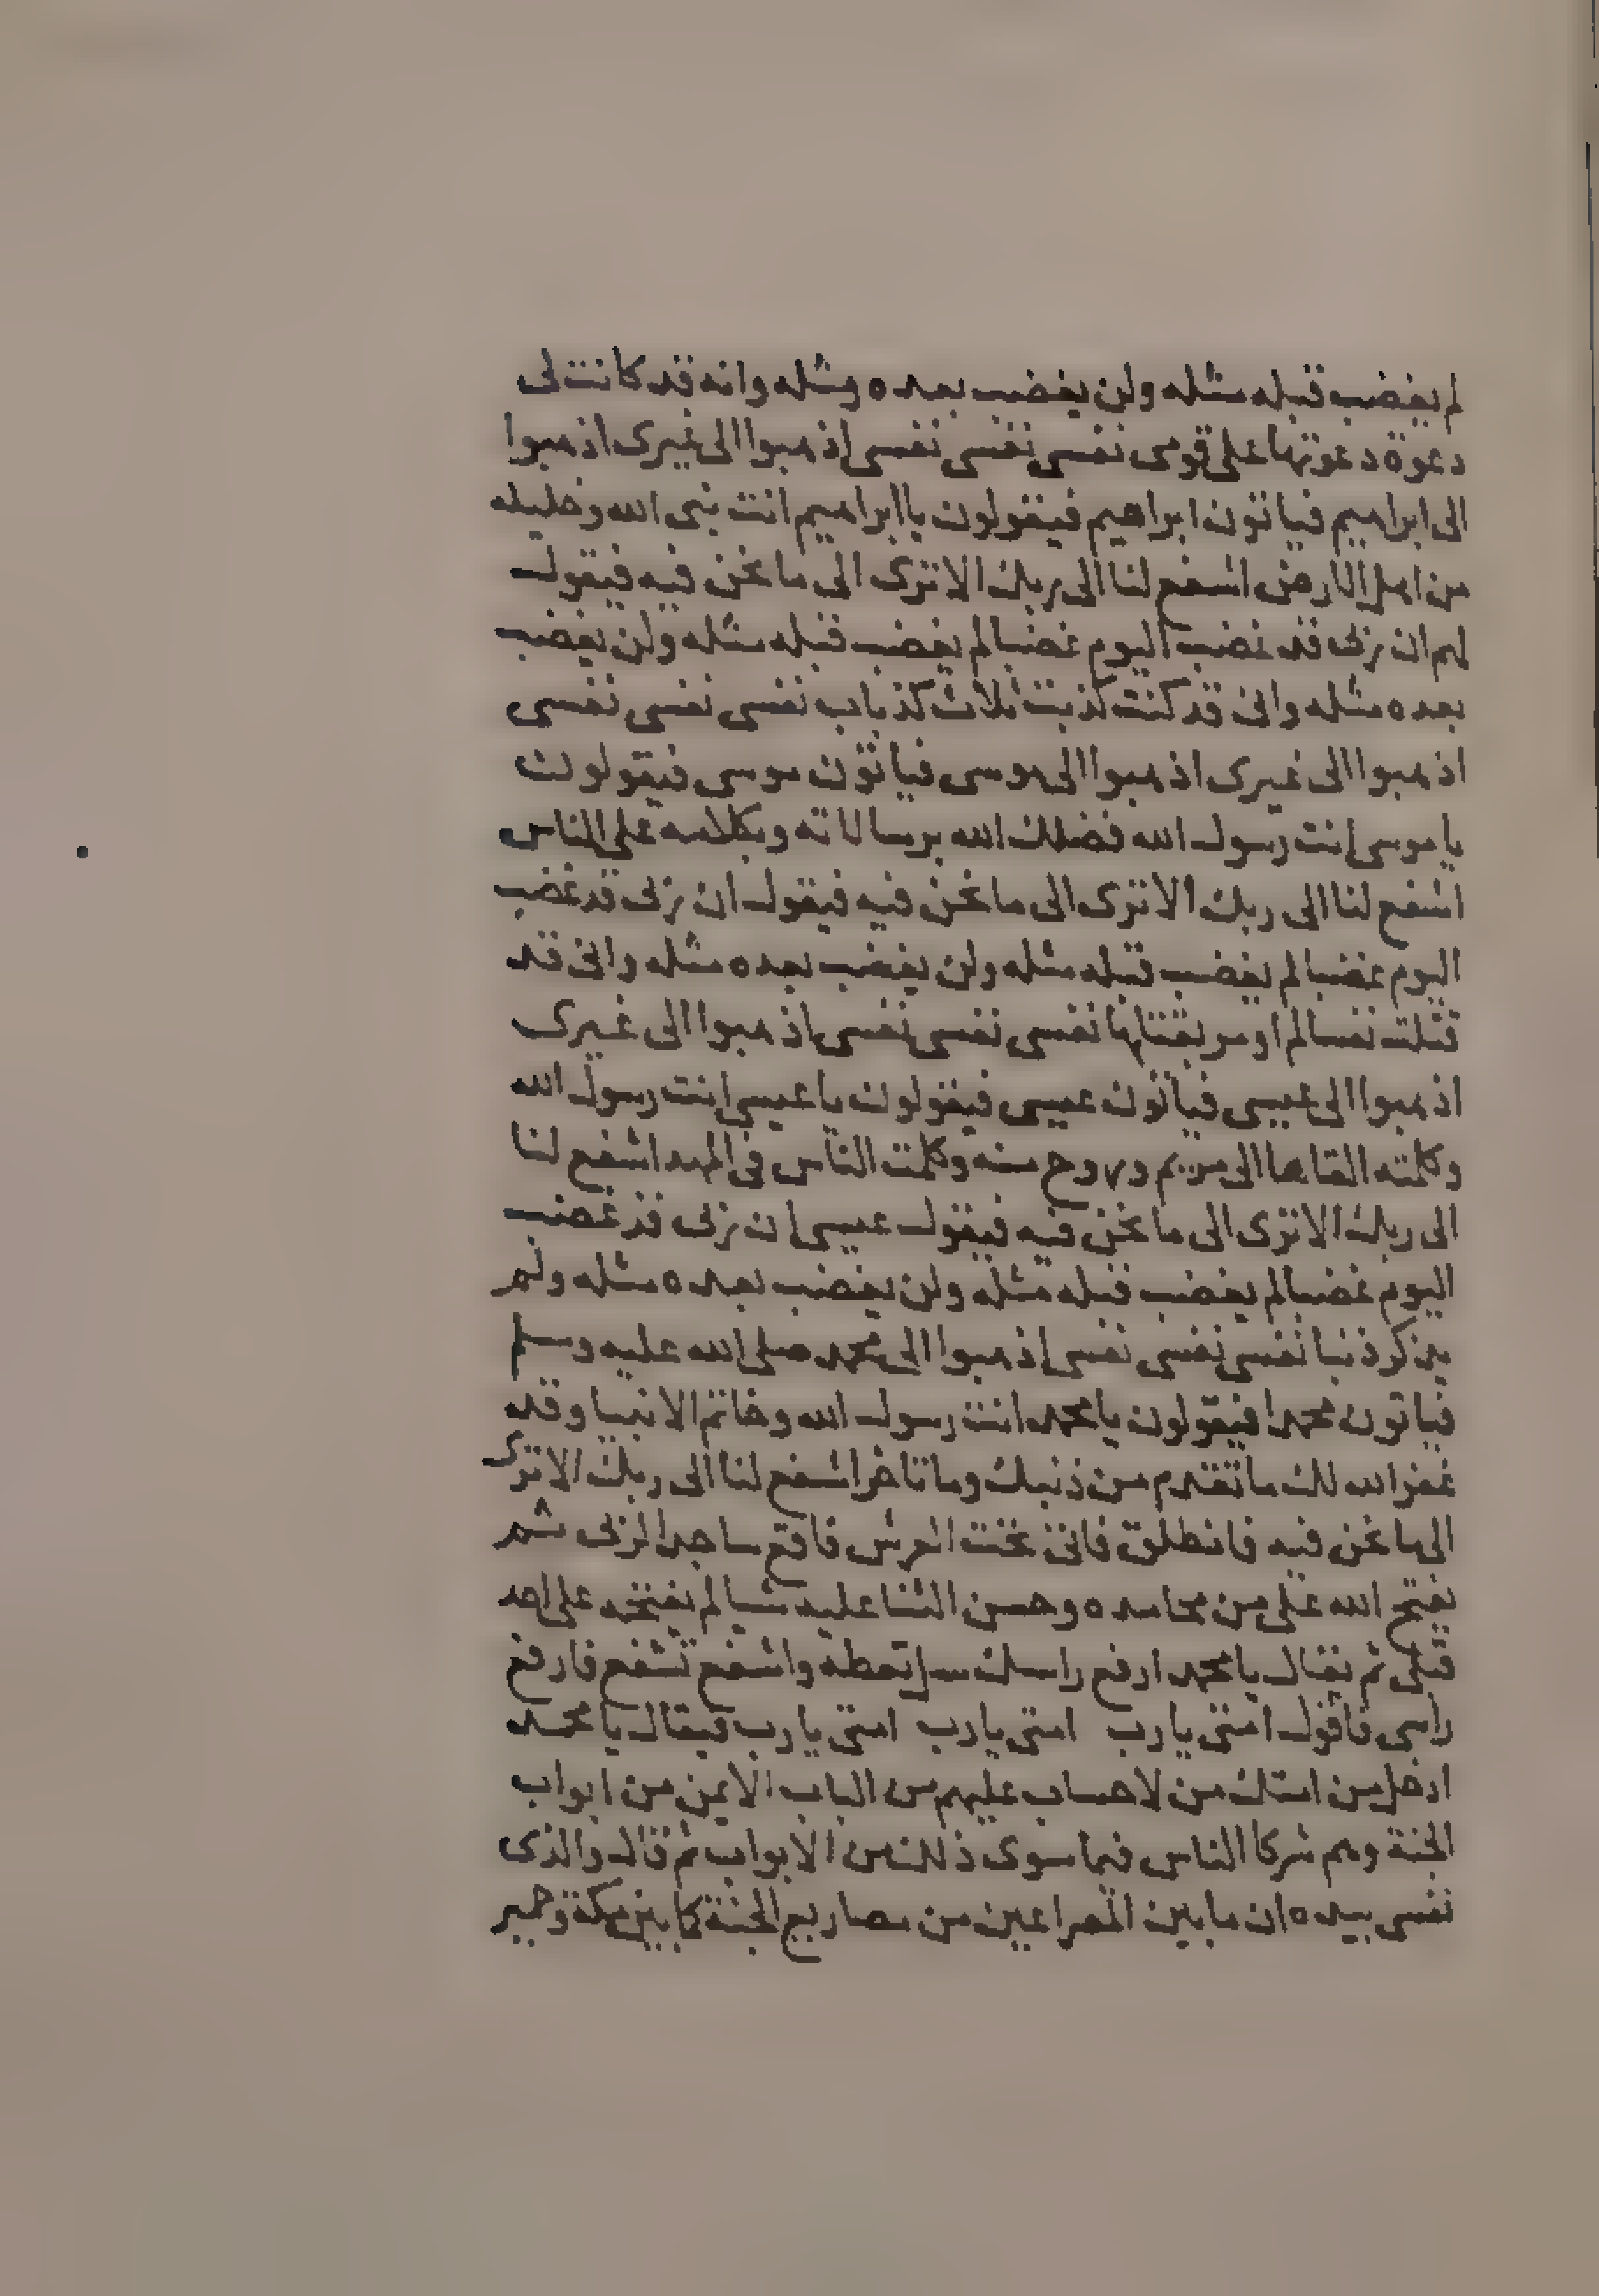 لم يغضب قبله مثله ولن يغضب بعده مثله وانه قد كانت لى
دعوة دعوتها على قومى نفسى نفسى نفسى اذهبوا الى غيرى اذهبوا
الى ابراهيم فياتون ابراهيم فيقولون يا ابراهيم انت نبى الله وخليله
من اهل الارض اشفع لنا الى ربك الا ترى الى ما نحن فيه فيقول
لهم ان ربى قد غضب اليوم غضبا لم يغضب قبله مثله ولن يغضب
بعده مثله وانى قد كنت كذبت ثلاث كذبات نفسى نفسى نفسى
اذهبوا الى غيرى اذهبوا الى موسى فياتون موسى فيقولون
يا موسى انت رسول الله فضلك الله برسالاته وبكلامه على الناس
اشفع لنا الى ربك الا ترى الى ما نحن فيه فيقول ان ربى قد غضب
اليوم غضبا لم يغضب قبله مثله ولن يغضب بعده مثله وانى قد
قتلت نفسا لم اومر بقتلها نفسى نفسى نفسى اذهبوا الى غيرى
اذهبوا الى عيسى فياتون عيسى فيقولون يا عيسى انت رسول الله
وكلمته القاها الى مريم وروح منه وكلمت الناس فى المهد اشفع لنا
الى ربك الا ترى الى ما نحن فيه فيقول عيسى ان ربى قد غضب
اليوم غضبا لم يغضب قبله مثله ولن يغضب بعده مثله ولم
يذكر ذنبا نفسى نفسى نفسى اذهبوا الى محمد صلى الله عليه وسلم
فياتون محمدا فيقولون يا محمد انت رسول الله وخاتم الانبيا وقد
غفر الله لك ما تقدم من ذنبك وما تاخر اشفع لنا الى ربك الا ترى
الى ما نحن فيه فانطلق فاتى تحت العرش فاقع ساجدا لربى ثم
يفتح الله على من محامده وحسن الثنا عليه شيا لم يفتحه على احد
قبلى ثم يقال يا محمد ارفع راسك سل تعطه واشفع تشفع فارفع
راسى فاقول امتى يا رب امتى يا رب امتى يا رب فيقال يا محمد
ادخل من امتك من لا حساب عليهم من الباب الايمن من ابواب
الجنة وهم شركا الناس فيما سوى ذلك من الابواب ثم قال والذى
نفسى بيده ان ما بين المصراعين من مصاريع الجنة كما بين مكة وحمير